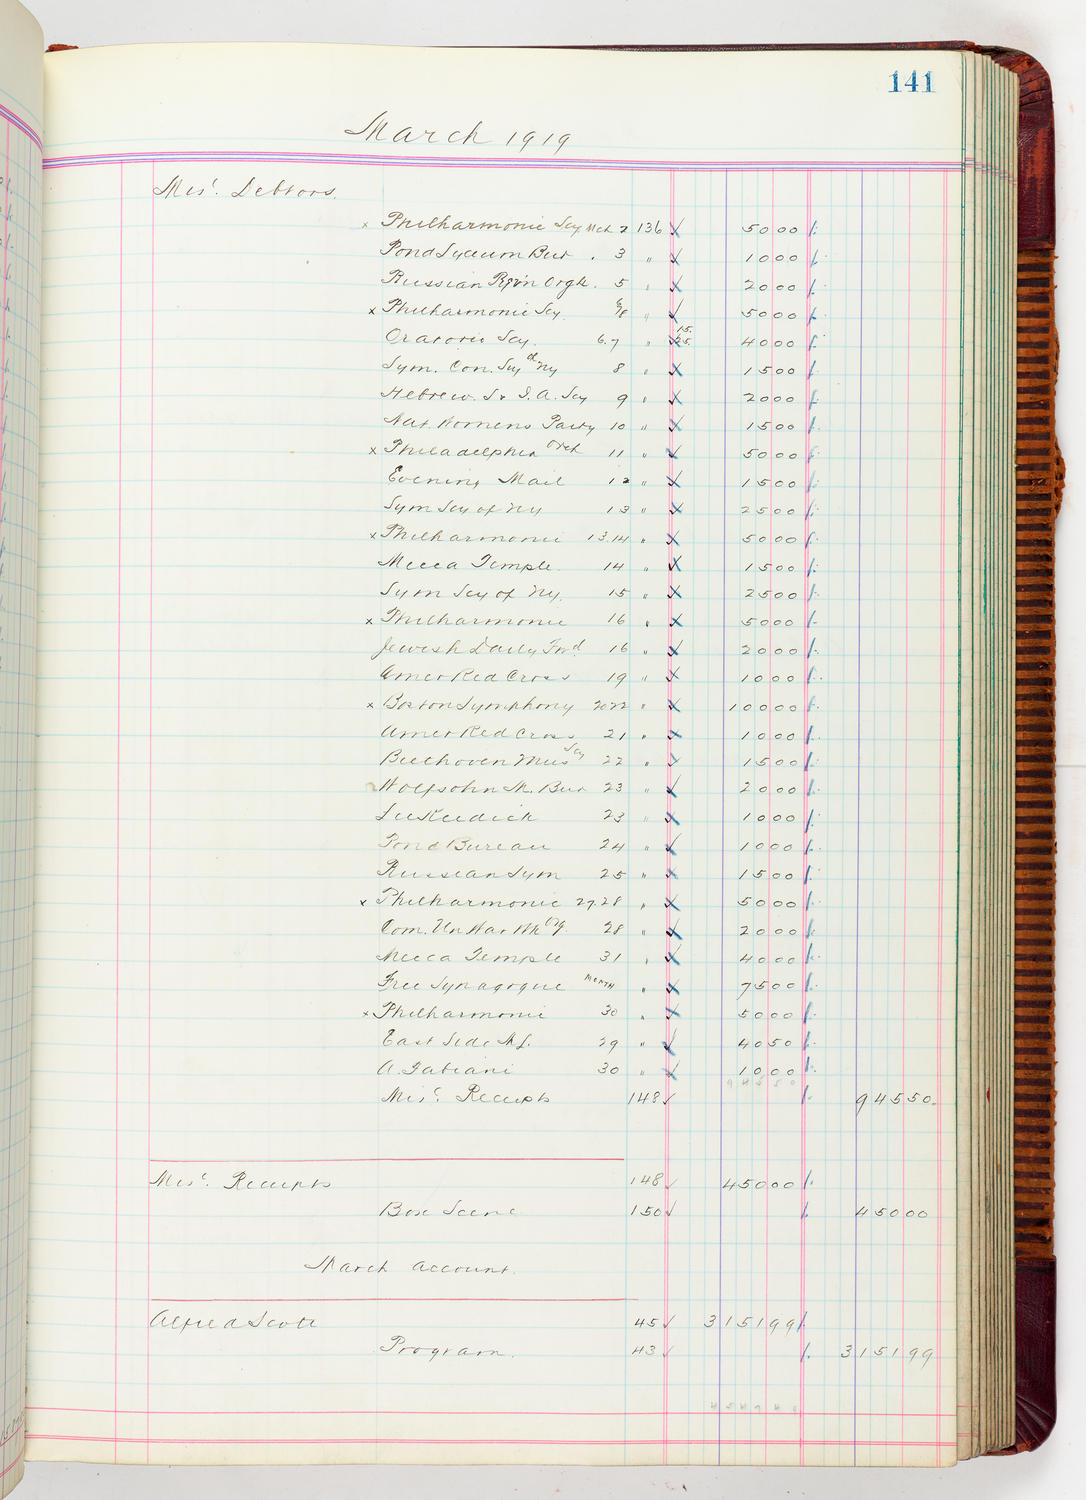 141
March 1919
Misc. Debtors.
x Philharmonic Scy Mch 2 136 5000
Pond Lyceum Bur . 3 " 1000
Russian Orgh. 5 " 2000
x Philharmonic Scy. 6/8 " 5000
Oratorio Scy. 6.7 " 15. 25. 4000
Sym. Con. Scy of NY 8 " 1500
Hebrew. S & I. A. Scy 9 " 2000
Nat Womens Party 10 " 1500
x Philadelphia Orch 11 " 5000
Evening Mail 12 " 1500
Sym Scy of NY 13 " 2500
x Philharmonic 13.14 " 5000
Mecca Temple. 14 " 1500
Sym Scy of NY. 15 " 2500
x Philharmonic 16 " 5000
Jewish Daily Fwd 16 " 2000
Amer Red Cross 19 " 1000
x Boston Symphony 20 22 " 10000
Amer Red Cross 21 " 1000
Beethoven Mus Scy 22 " 1500
Wolfsohn M. Bur 23 " 2000
Lee Keedick 23 " 1000
Pond Bureau 24 " 1000
Russian Sym 25 " 1500
x Philharmonic 27.28 " 5000
Com. Un War Wk Org. 28 " 2000
Mecca Temple 31 " 4000
Free Synagogue Month " 7500
x Philharmonic 30 " 5000
East Side 29 " 4050
A. Fabiani 30 " 1000
94550
Misc. Receipts 148 94550.
Misc. Receipts 148 45000
Box Scene 150 45000
March account.
Alfred Scott 45 315199
Program. 43 315199